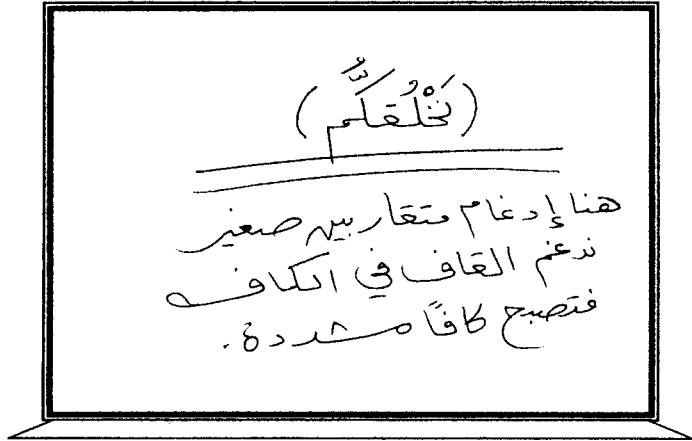 (نَخْلُقكُّم)
هنا إدغام متقاربين صغير
ندغم القاف في الكاف
فتصبح كافًا مشددة.